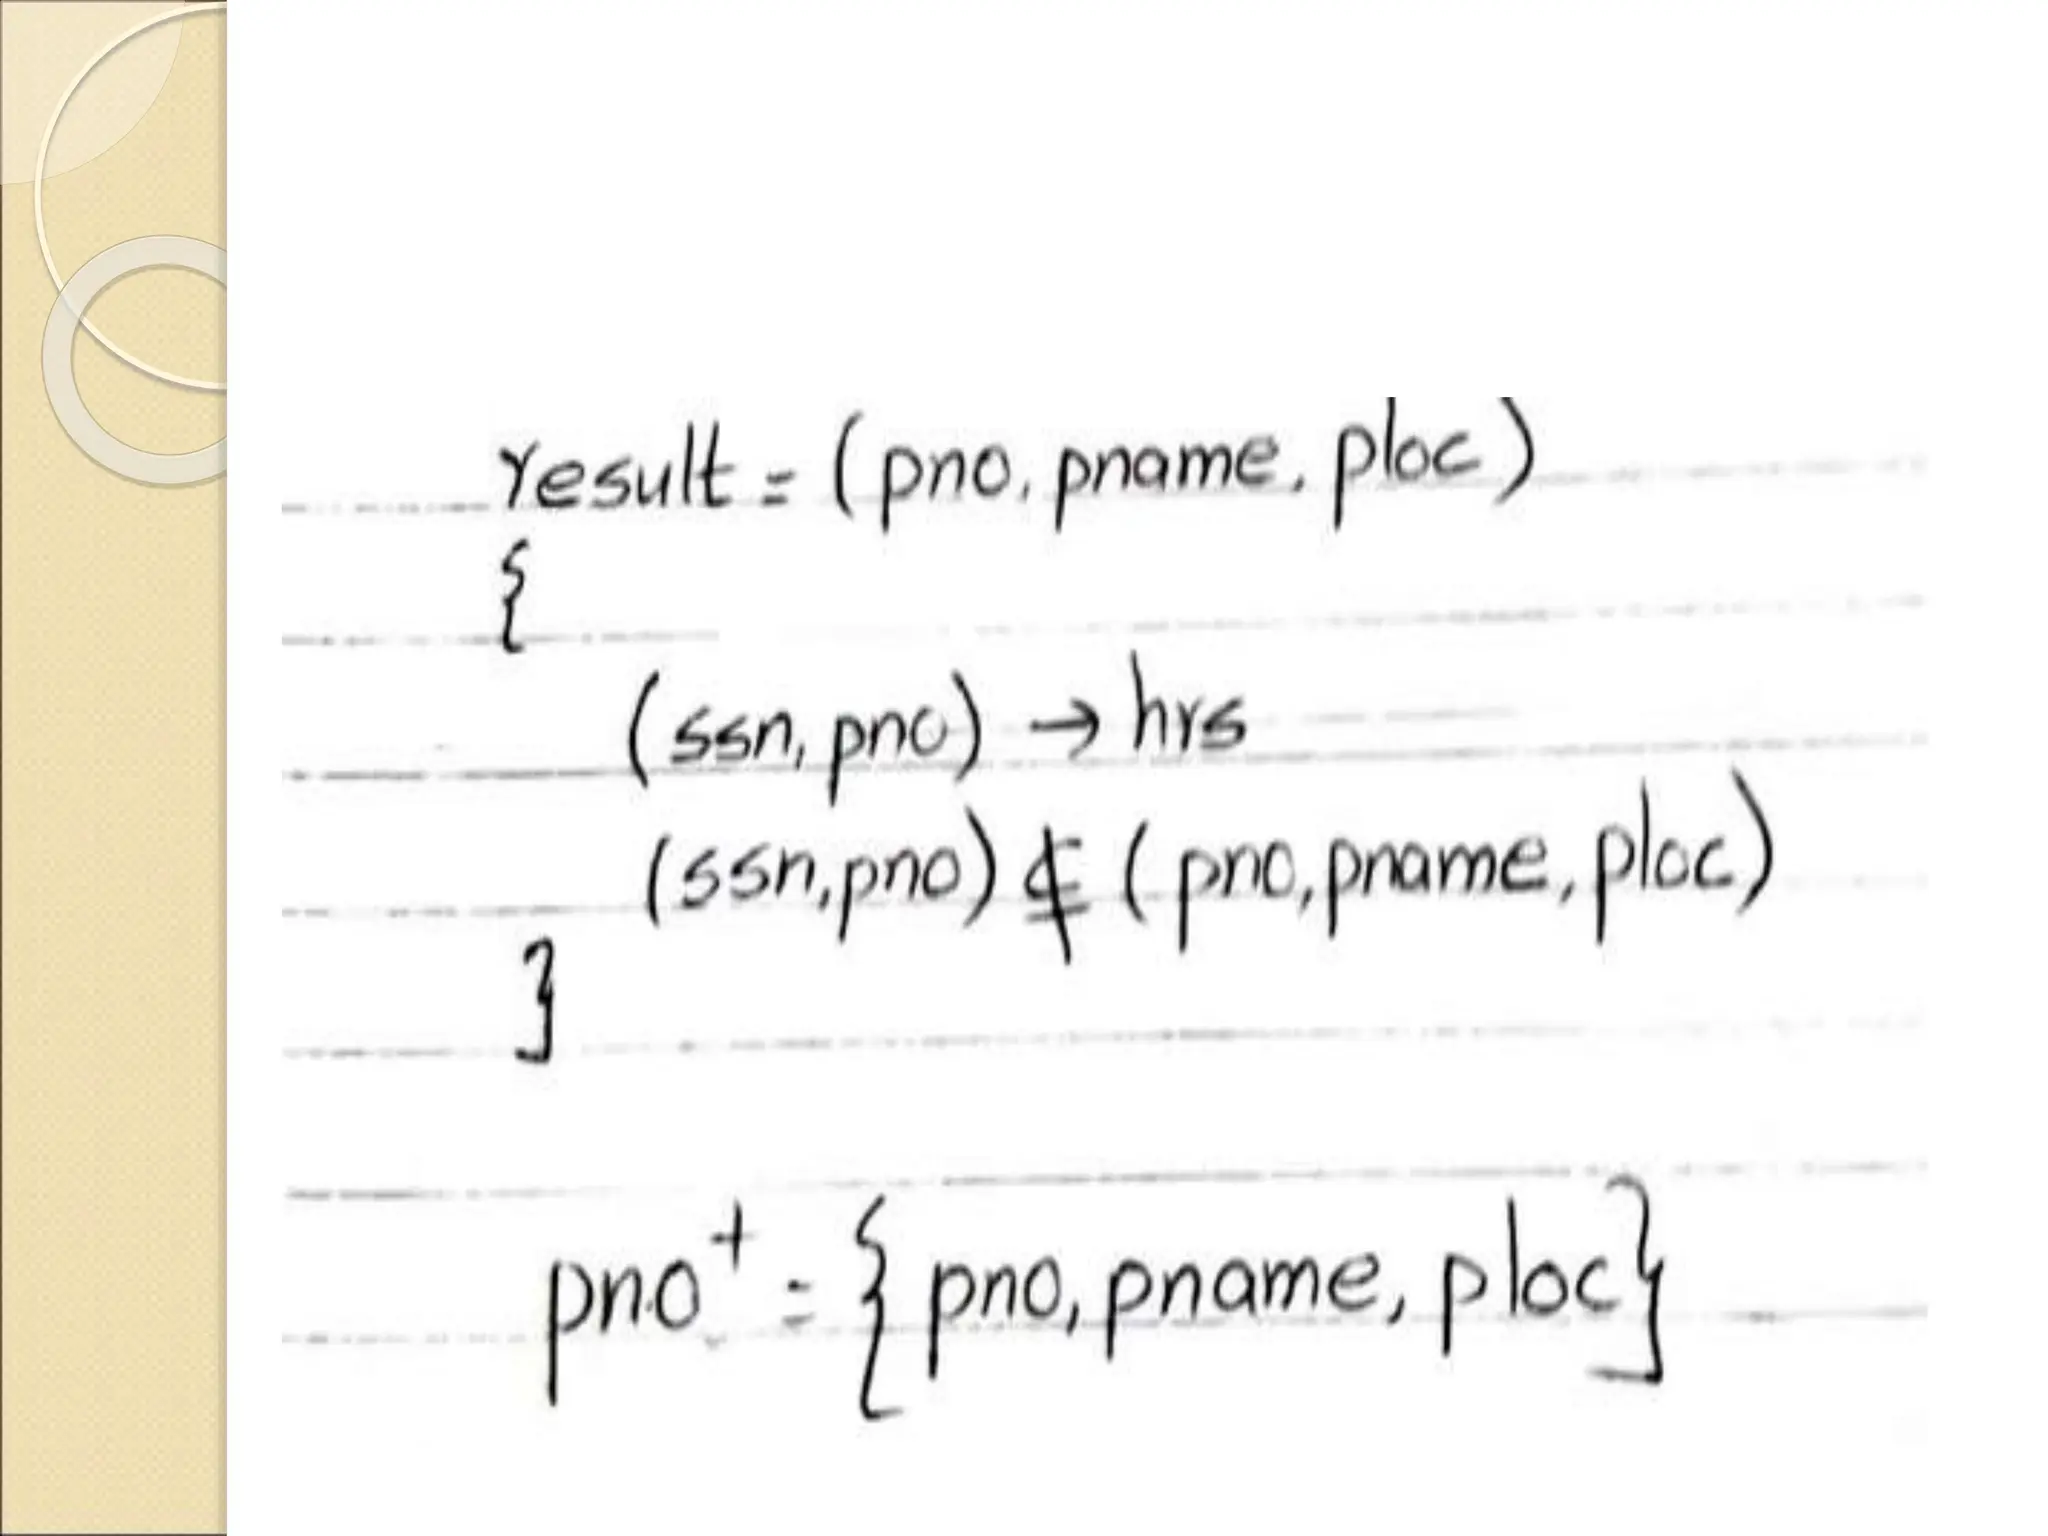 result = (pno, pname, ploc)
{
(ssn, pno) → hrs
(ssn, pno) ⊈ (pno, pname, ploc)
}
pno⁺ = {pno, pname, ploc}